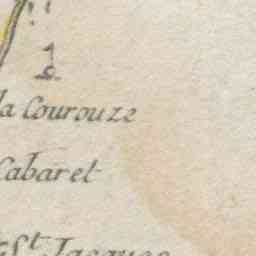 la Courouze
Cabaret
St Jacques